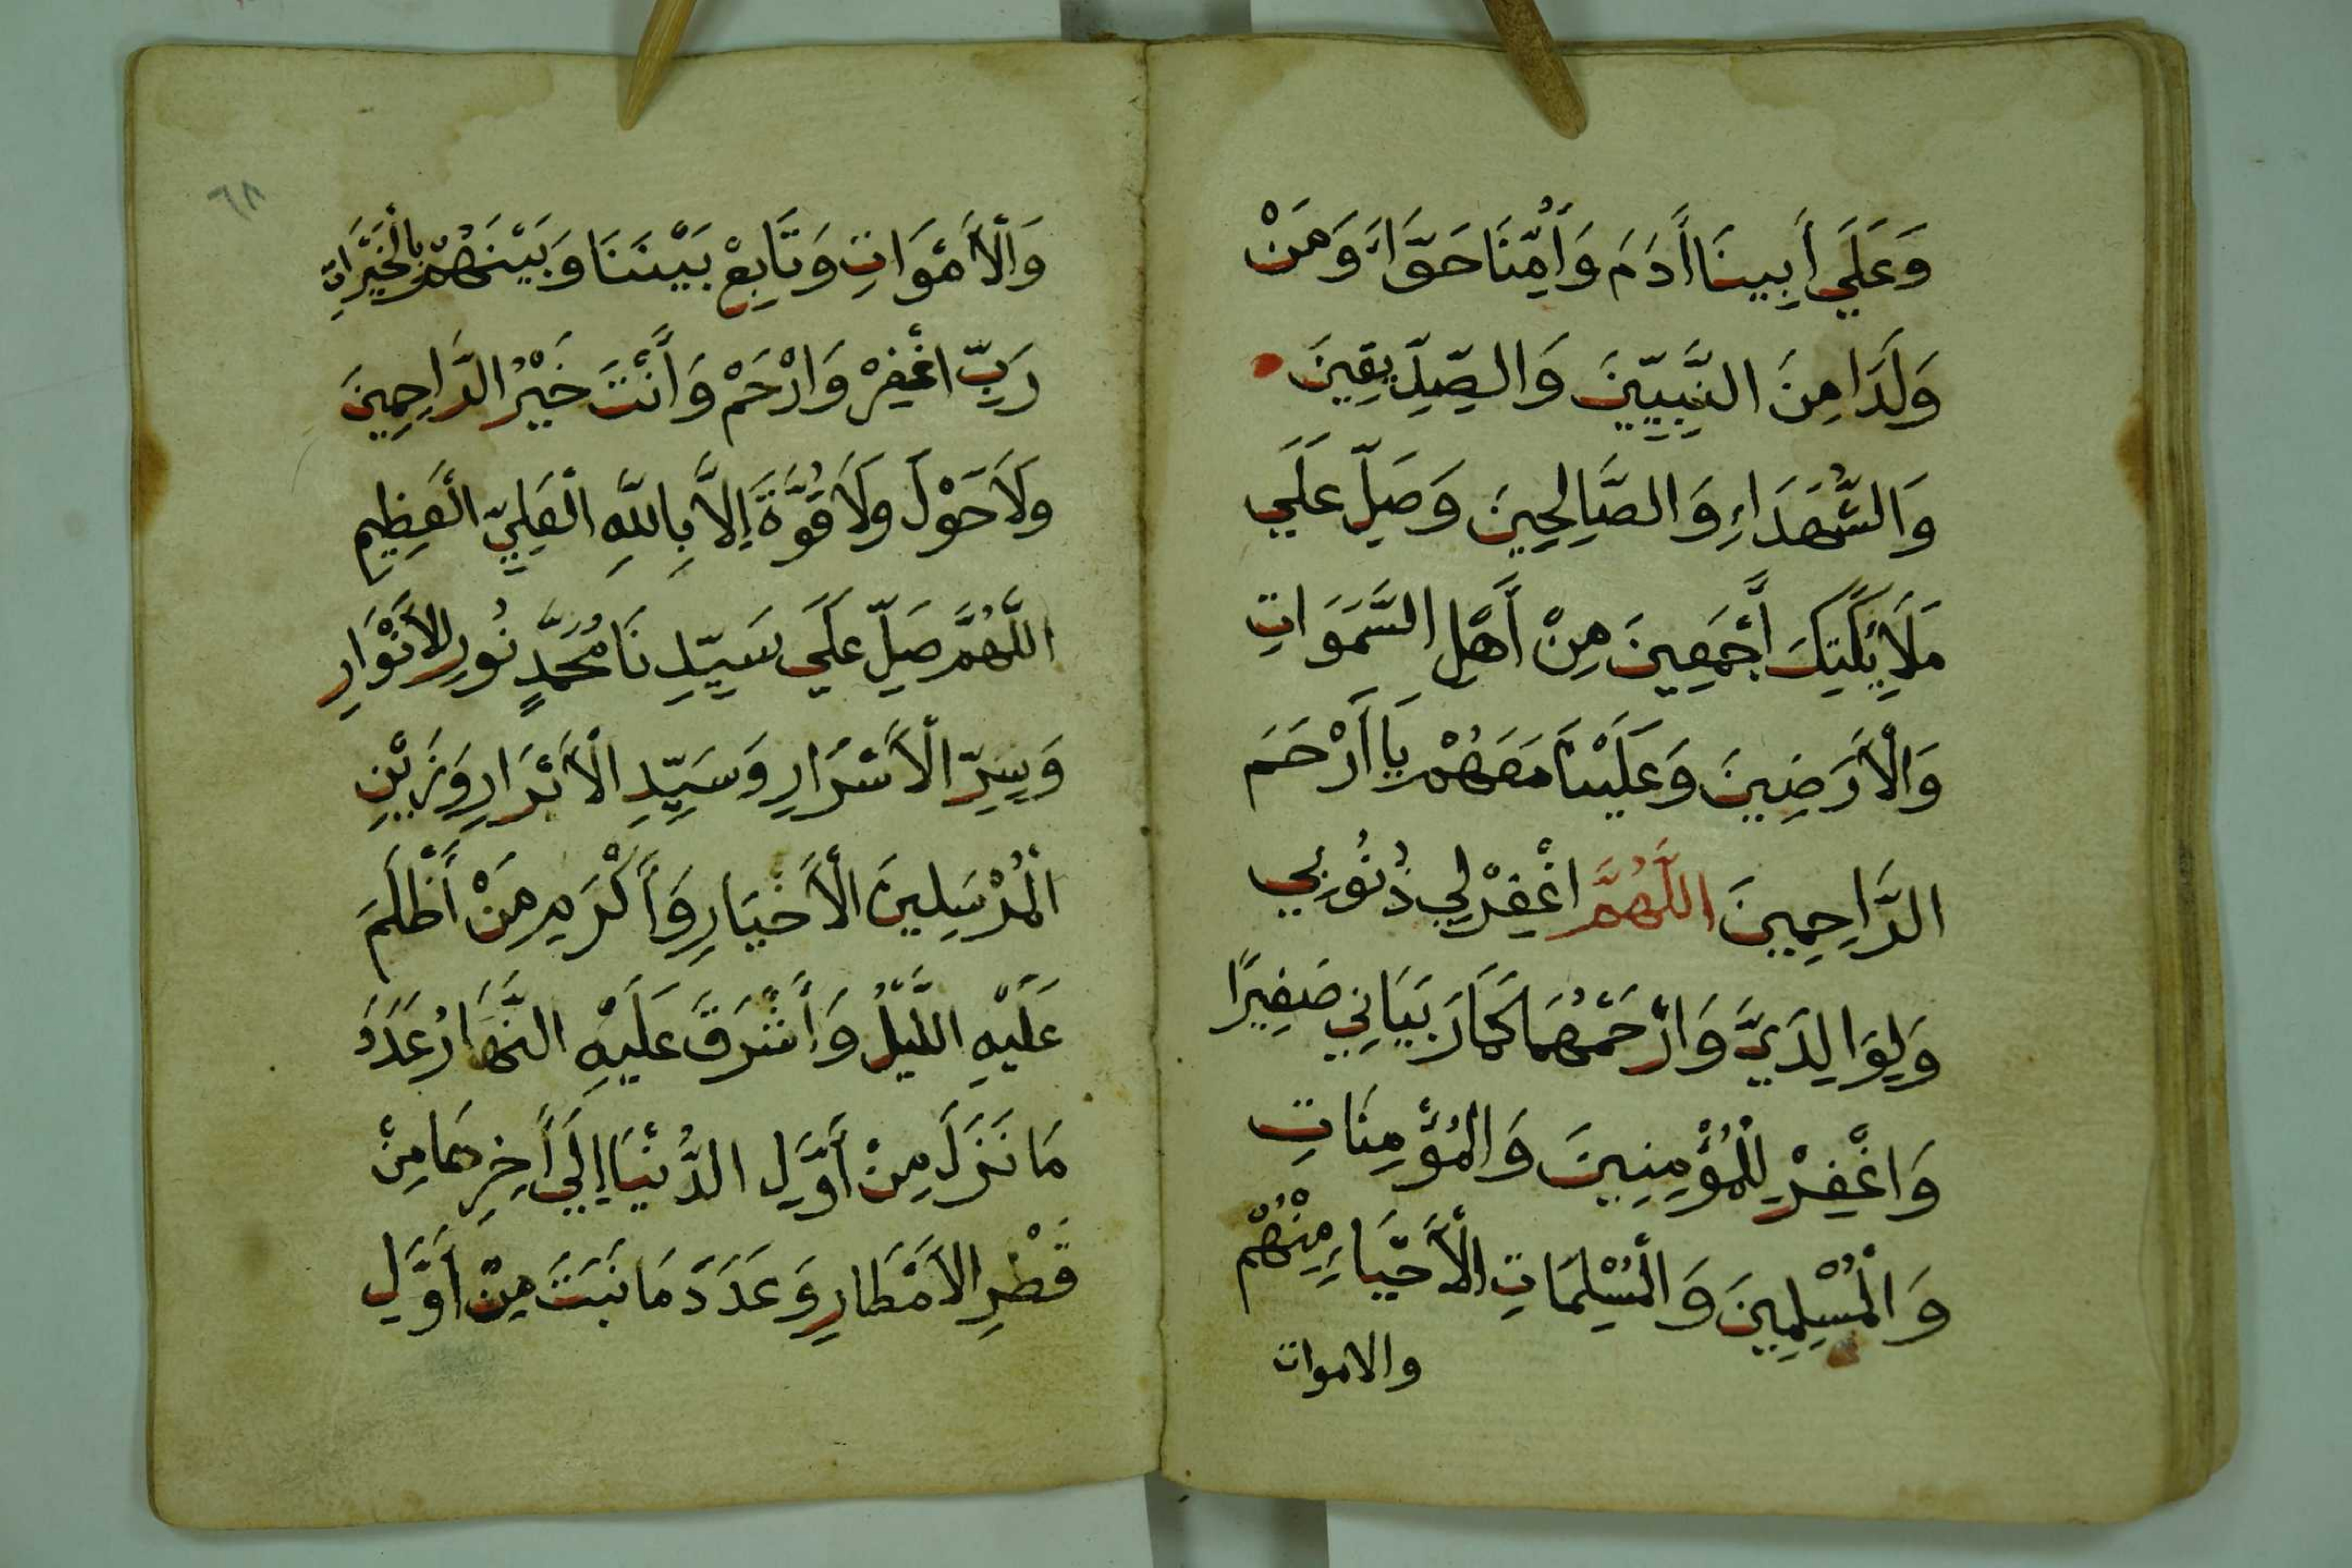 وَعَلَي أَبِينَا أَدَمَ وَأُمِّنَا حَوَّاءَ وَمَنْ
وَلَدَا مِنَ النَّبِيِّينَ وَالصِّدِّيقِينَ
وَالشُّهَدَاءِ وَالصَّالِحِينَ وَصَلِّ عَلَي
مَلَائِكَتِكَ أَجْمَعِينَ مِنْ أَهْلِ السَّمَوَاتِ
وَالْأَرَضِينَ وَعَلَيْنَا مَعَهُمْ يَا أَرْحَمَ
الرَّاحِمِينَ اللَّهُمَّ اغْفِرْ لِي ذُنُوبِي
وَلِوَالِدَيَّ وَارْحَمْهُمَا كَمَا رَبَّيَانِي صَغِيرًا
وَاغْفِرْ لِلْمُؤْمِنِينَ وَالْمُؤْمِنَاتِ
وَالْمُسْلِمِينَ وَالْمُسْلِمَاتِ الْأَحْيَاءِ مِنْهُمْ
والاموات
٦٨
وَالْأَمْوَاتِ وَتَابِعْ بَيْنَنَا وَبَيْنَهُمْ بِالْخَيْرَاتِ
رَبِّ اغْفِرْ وَارْحَمْ وَأَنْتَ خَيْرُ الرَّاحِمِينَ
وَلَا حَوْلَ وَلَا قُوَّةَ إِلَّا بِاللَّهِ الْعَلِيِّ الْعَظِيمِ
اللَّهُمَّ صَلِّ عَلَي سَيِّدِنَا مُحَمَّدٍ نُورِ الْأَنْوَارِ
وَسِرِّ الْأَسْرَارِ وَسَيِّدِ الْأَبْرَارِ وَزَيْنِ
الْمُرْسَلِينَ الْأَخْيَارِ وَأَكْرَمِ مَنْ أَظْلَمَ
عَلَيْهِ اللَّيْلُ وَأَشْرَقَ عَلَيْهِ النَّهَارُ عَدَدَ
مَا نَزَلَ مِنْ أَوَّلِ الدُّنْيَا إِلَي أَخِرِهَا مِنْ
قَطْرِ الْأَمْطَارِ وَعَدَدَ مَا نَبَتَ مِنْ أَوَّلِ